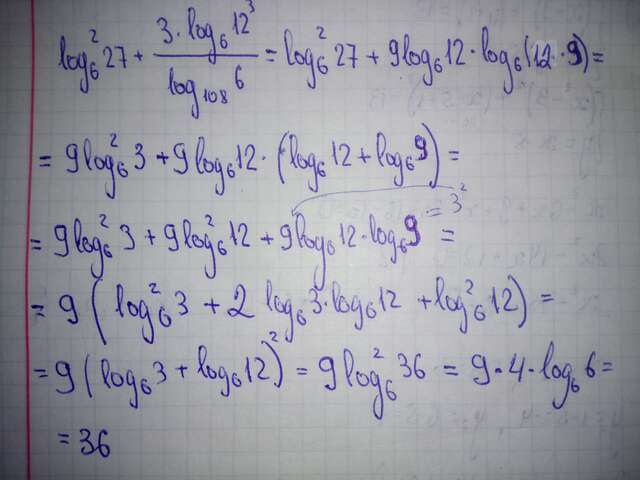 log₆²27 + (3·log₆12³)/(log₁₀₈6) = log₆²27 + 9log₆12·log₆(12·9) =
= 9log₆²3 + 9log₆12·(log₆12 + log₆9) =
= 9log₆²3 + 9log₆²12 + 9log₆12·log₆9 = 3²
=
= 9(log₆²3 + 2log₆3·log₆12 + log₆²12) =
= 9(log₆3 + log₆12)² = 9log₆²36 = 9·4·log₆6 =
= 36